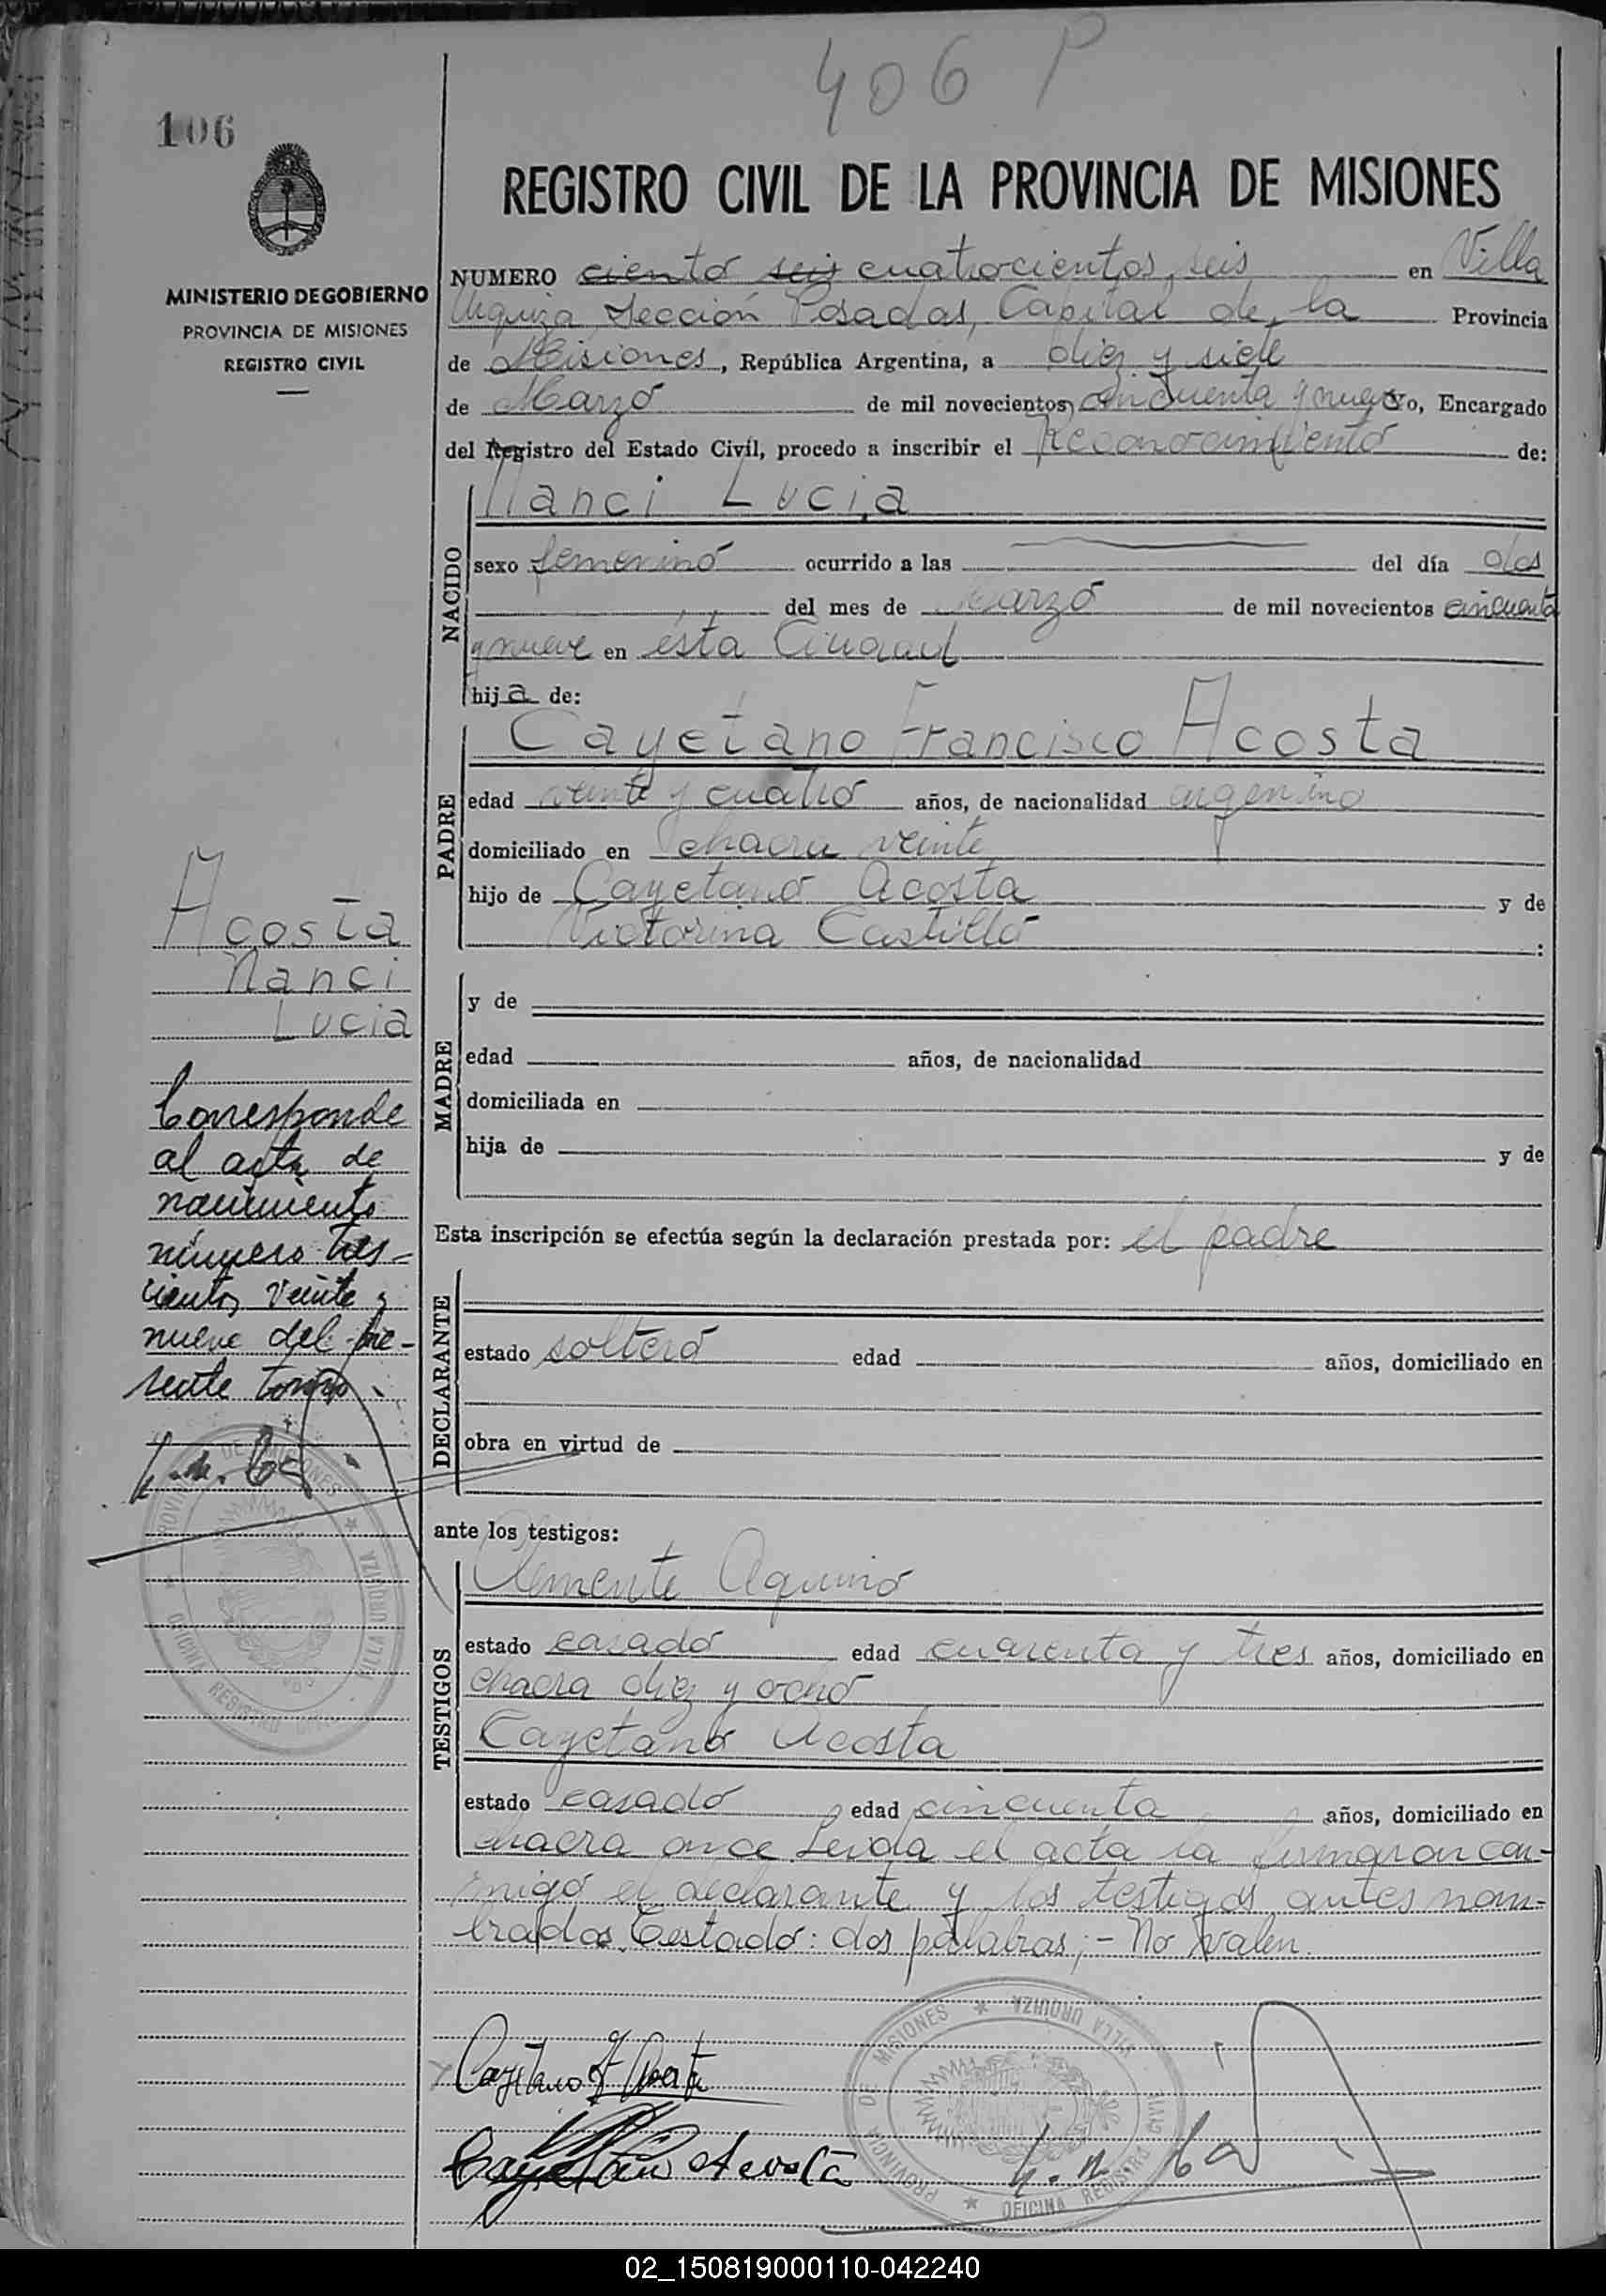 406 P
106
REGISTRO CIVIL DE LA PROVINCIA DE MISIONES
MINISTERIO DE GOBIERNO
PROVINCIA DE MISIONES
REGISTRO CIVIL
NUMERO ciento seis cuatrocientos seis en Villa
Urquiza Sección Posadas, Capital de la Provincia
de Misiones, República Argentina, a diez y siete
de Marzo de mil novecientos cincuenta y nueve yo, Encargado
del Registro del Estado Civil, procedo a inscribir el Reconocimiento de:
NACIDO
Nanci Lucia
sexo femenino ocurrido a las del día dos
del mes de Marzo de mil novecientos cincuenta
y nueve en ésta Ciudad
hija de:
PADRE
Cayetano Francisco Acosta
edad veinte y cuatro años, de nacionalidad argentino
domiciliado en chacra veinte
hijo de Cayetano Acosta y de
Victorina Castillo :
Acosta
Nanci
Lucia
Corresponde
al acta de
nacimiento
número tres-
cientos veinte y
nueve del pre-
sente tomo.
MADRE
y de
edad años, de nacionalidad
domiciliada en
hija de y de
Esta inscripción se efectúa según la declaración prestada por: el padre
DECLARANTE
estado soltero edad años, domiciliado en
obra en virtud de
ante los testigos:
TESTIGOS
Clemente Aquino
estado casado edad cuarenta y tres años, domiciliado en
chacra diez y ocho
Cayetano Acosta
estado casado edad cincuenta años, domiciliado en
chacra once Leida el acta la firmaron con-
migo el declarante y los testigos antes nom-
brados. Testado: dos palabras;- No valen.
PROVINCIA DE MISIONES * VILLA URQUIZA
OFICINA REGISTRO CIVIL
Cayetano F Acosta
Cayetano Acosta
PROVINCIA DE MISIONES * VILLA URQUIZA
* OFICINA REGISTRO CIVIL
02_150819000110-042240